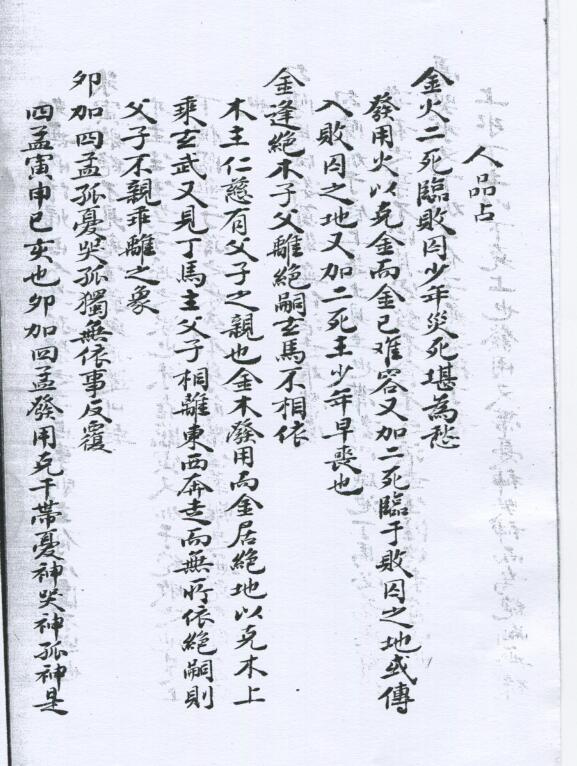 人品占
金火二死臨敗囚少年災死堪為愁
發用火以克金而金已难容又加二死臨于敗囚之地或傳
入敗囚之地又加二死主少年早喪也
金逢絶木子父離絶嗣玄馬不相依
木主仁慈有父子之親也金木發用而金居絶地以克木上
乘玄武又見丁馬主父子相離東西奔走而無所依絶嗣則
父子不親乖離之象
夘加四孟孤憂哭孤獨無依事反覆
四孟寅申巳亥也夘加四孟發用克干帶憂神哭神孤神是